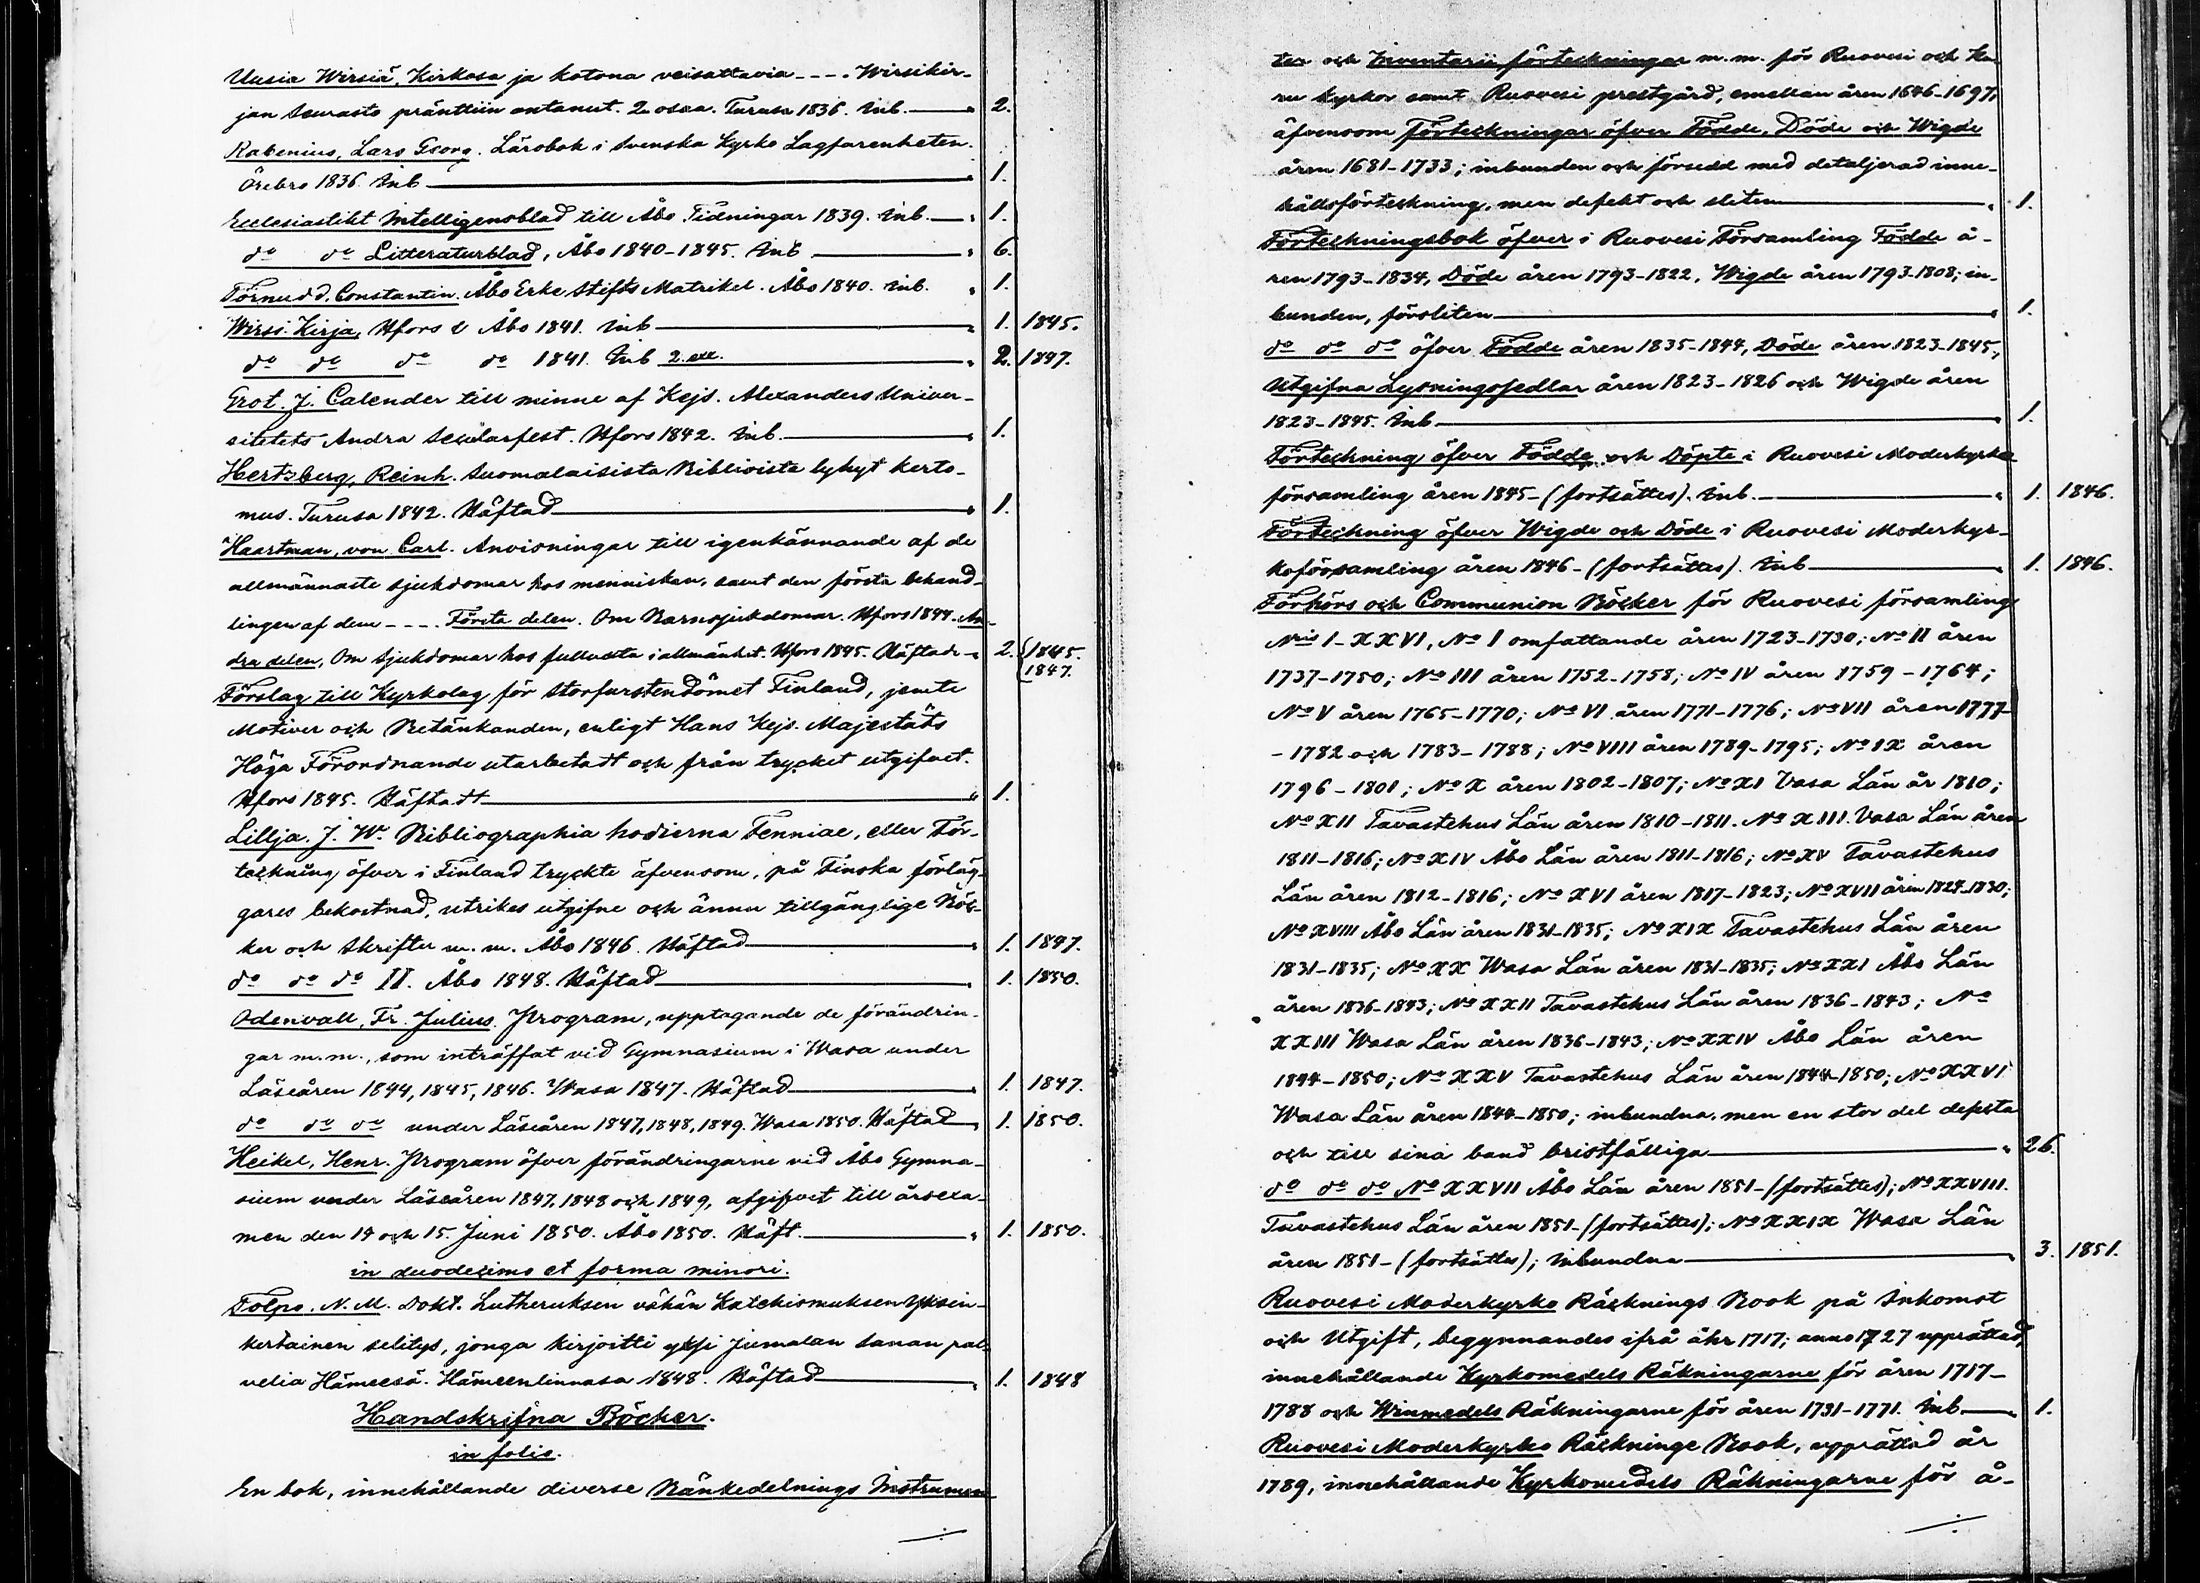 Uusia Wirsiä, Kirkosa ja kotona veisattavia - - - . Wirsikir-
jan Seurasta präntttiin antanut. 2 osaa. Turusa 1836. Inb. " 2.
Rabenius, Lars Georg. Lärobok i Svenska Kyrko Lagfarenheten.
Örebro 1836. Inb " 1.
Ecclesiastikt Intelligensblad till Åbo Tidningar 1839. Inb. " 1.
do do Litteraturblad, Åbo 1840-1845. Inb " 6.
Törnudd, Constantin. Åbo Erke Stifts Matrikel. Åbo 1840. Inb. " 1.
Wirsi Kirja, Hfors & Åbo 1841. Inb " 1. 1845.
do do do do 1841. Inb 2. ex. " 2. 1847.
Grot. J. Calender till minne af Kejs. Alexanders Univer-
sitetets Andra Secularfest. Hfors 1842. Inb. " 1.
Hertzberg, Reinh. Suomalaisista Biblioista lyhyt kerto-
mus. Turusa 1842. Häftad " 1.
Haartman, von Carl. Anvisningar till igenkännande af de
allmännaste sjukdomar hos menniskan, samt den första behand-
lingen af dem - - - . Första delen. Om Barnsjukdomar. Hfors 1844. An-
dra delen, Om Sjukdomar hos fullvuxta i allmänhet. Hfors 1845. Häftade " 2. { 1845.
1847.
Förslag till Kyrkolag för Storfurstendömet Finland, jemte
Motiver och Betänkanden, enligt Hans Kejs. Majestäts
Höga Förordnande utarbetadt och från trycket utgifvet.
Hfors 1845. Häftadt " 1.
Lillja. J. W. Bibliographia hodierna Fenniae, eller För-
teckning öfver i Finland tryckte äfvensom, på Finska förläg-
gares bekostnad, utrikes utgifne och ännu tillgänglige Böc-
ker och Skrifter m. m. Åbo 1846. Häftad " 1. 1847.
do do do II. Åbo 1848. Häftad " 1. 1850.
Odenvall, Fr. Julius. Program, upptagande de förändrin-
gar m.m., som inträffat vid Gymnasium i Wasa under
Läseåren 1844, 1845, 1846. Wasa 1847. Häftad " 1. 1847.
do do do under Läseåren 1847, 1848, 1849. Wasa 1850. Häftad " 1. 1850.
Heikel, Henr. Program öfver förändringarne vid Åbo Gymna-
sium under Läseåren 1847, 1848 och 1849, afgifvet till årsexa-
men den 14 och 15. Juni 1850. Åbo 1850. Häft. " 1. 1850.
in duodecimo et forma minori.
Tolpo. N. M. Dokt. Lutheruksen vähän Katekismuksen Yksin-
kertainen selitys, jonga kirjoitti yksi Jumalan Sanan pal-
velia Hämeesä. Hämeenlinnasa 1848. Häftad " 1. 1848
Handskrifna Böcker.
in folio.
En bok, innehållande diverse Bänkedelnings Instrumen-
ter och Inventarii förteckningar m.m. för Ruovesi och Ku-
ru kyrkor samt Ruovesi prestgård, emellan åren 1646-1697,
äfvensom förteckningar öfver Födde, Döde och Wigde
åren 1681-1733; inbunden och försedd med detaljerad inne-
hållsförteckning, men defekt och sliten " 1.
Förteckningsbok öfver i Ruovesi Församling Födde å-
ren 1793-1834, Döde åren 1793-1822, Wigde åren 1793-1808; in-
bunden, försliten " 1.
do do do öfver Födde åren 1835-1844, Döde åren 1823-1845,
Utgifna Lysningssedlar åren 1823-1826 och Wigde åren
1823-1845. Inb " 1.
Förteckning öfver Födde och Döpte i Ruovesi Moderkyrko
församling åren 1845-(fortsättes). Inb. " 1. 1846.
Förteckning öfver Wigde och Döde i Ruovesi Moderkyr-
koförsamling åren 1846-(fortsättes). Inb " 1. 1846.
Förhörs och Communion Böcker för Ruovesi församling
Nris I-XXVI, No I omfattande åren 1723-1730; No II åren
1737-1750; No III åren 1752-1758; No IV åren 1759-1764;
No V åren 1765-1770; No VI åren 1771-1776; No VII åren 1777-
-1782 och 1783-1788; No VIII åren 1789-1795; No IX åren
1796-1801; No X åren 1802-1807; No XI Vasa Län år 1810;
No XII Tavastehus Län åren 1810-1811. No XIII. Vasa Län åren
1811-1816; No XIV Åbo Län åren 1811-1816; No XV Tavastehus
Län åren 1812-1816; No XVI åren 1817-1823; No XVII åren 1824-1830;
No XVIII Åbo Län åren 1831-1835; No XIX Tavastehus Län åren
1831-1835; No XX Wasa Län åren 1831-1835; No XXI Åbo Län
åren 1836-1843; No XXII Tavastehus Län åren 1836-1843; No
XXIII Wasa Län åren 1836-1843; No XXIV Åbo Län åren
1844-1850; No XXV Tavastehus Län åren 1844-1850; No XXVI
Wasa Län åren 1844-1850; inbundna, men en stor del defecta
och till sina band bristfälliga " 26.
do do do No XXVII Åbo Län åren 1851-(fortsättes); No XXVIII.
Tavastehus Län åren 1851-(fortsättes); No XXIX Wasa Län
åren 1851-(fortsättes); inbundna " 3. 1851.
Ruovesi Moderkyrko Räcknings Book på Inkomst
och Utgift, begynnandes ifrå åhr 1717; anno 1727 upprättad,
innehållande Kyrkomedels Räkningarne för åren 1717-
1788 och Winmedels Räkningarne för åren 1731-1771. Inb " 1.
Ruovesi Moderkyrko Räcknings Book, upprättad år
1789, innehållande Kyrkomedels Räkningarne för å-